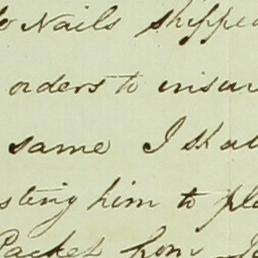 to Nails shipped
orders to insur
same I shal
sting him to pla
Packet from